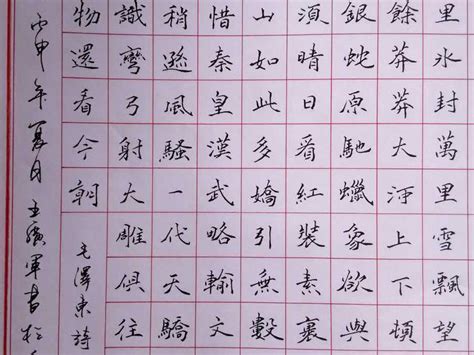 里氷封萬里雪飄望
餘莽莽大河上下頓
銀蛇原馳蠟象欲與
須晴日看紅裝素裹
山如此多嬌引無數
惜秦皇漢武略輸文
稍遜風騷一代天驕
識彎弓射大雕俱往
物還看今朝
毛澤東詩
丙申年夏日王軍書於